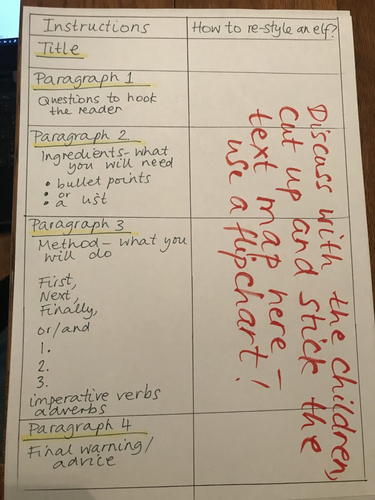 Instructions
How to re-style an elf?
Title
Paragraph 1
Questions to hook
the reader
Paragraph 2
Ingredients- what
you will need
• bullet points
• or
• a list
Paragraph 3
Method - what you
will do
First,
Next,
Finally,
or/and
1.
2.
3.
imperative verbs
adverbs
Paragraph 4
Final warning/
advice
Discuss with the children,
cut up and stick the
text map here -
use a flipchart!